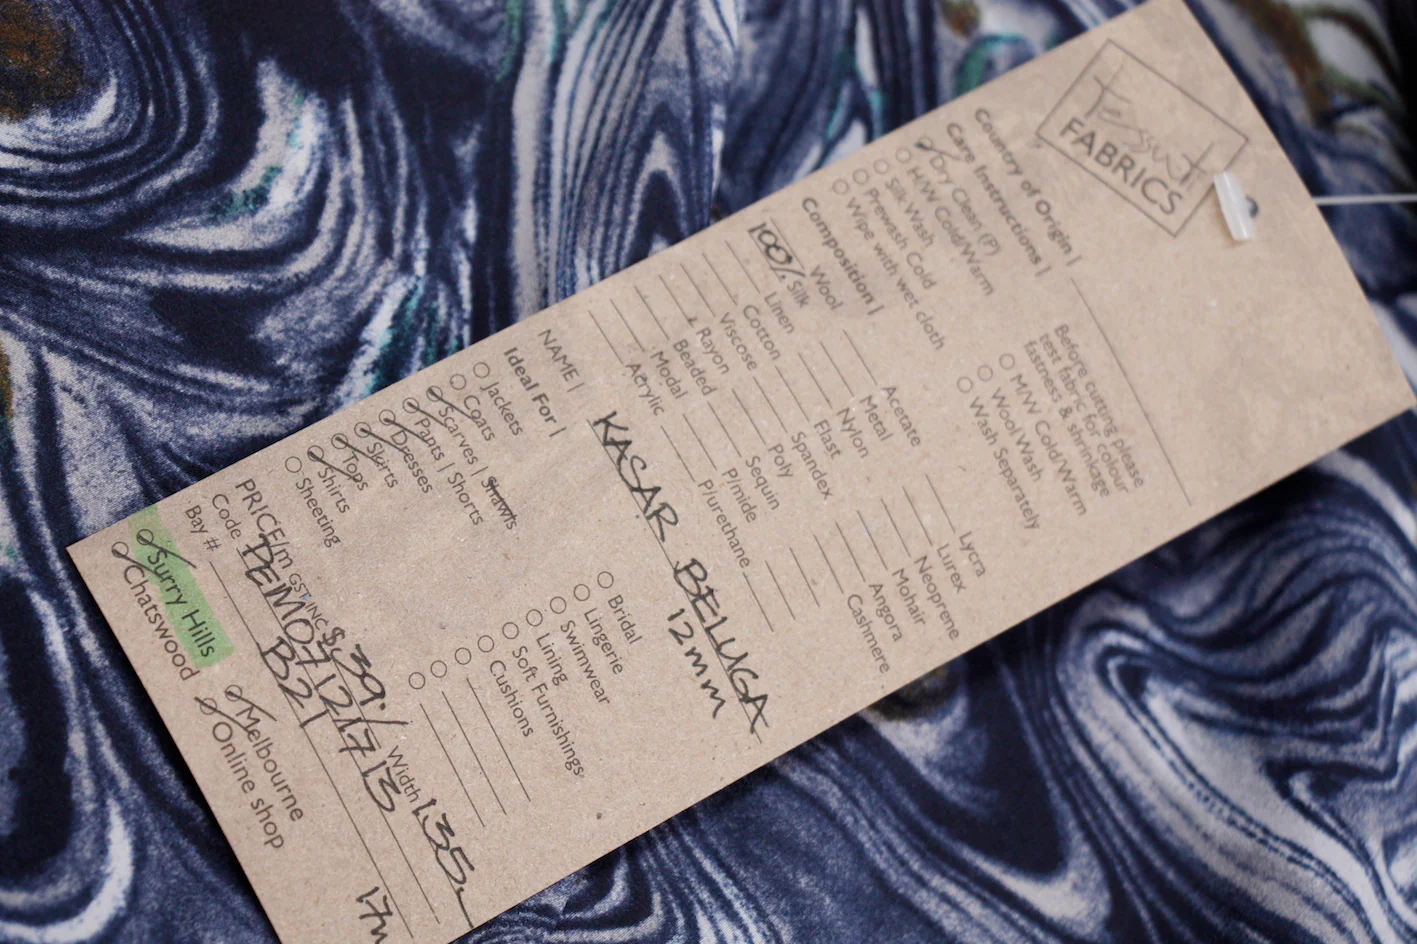 Tessuti
FABRICS
Country of Origin |
Care Instructions |
Dry Clean (P)
H/W Cold/Warm
Silk Wash
Prewash Cold
Wipe with wet cloth
Before cutting please
test fabric for colour
fastness & shrinkage
M/W Cold/Warm
Wool Wash
Wash Separately
Composition |
Wool
100% Silk
Linen
Cotton
Viscose
Rayon
Beaded
Modal
Acrylic
Acetate
Metal
Nylon
Elast
Spandex
Poly
Sequin
P/mide
P/urethane
Lycra
Lurex
Neoprene
Mohair
Angora
Cashmere
NAME | KASAR BELUGA
12mm
Ideal For |
Jackets
Coats
Scarves | Shawls
Pants | Shorts
Dresses
Skirts
Tops
Shirts
Sheeting
Bridal
Lingerie
Swimwear
Lining
Soft Furnishings
Cushions
PRICE/m GST INC $39./ Width 1.35m
Code DEMO.712/1713
Bay # B21
17m
Surry Hills
Chatswood
Melbourne
Online shop